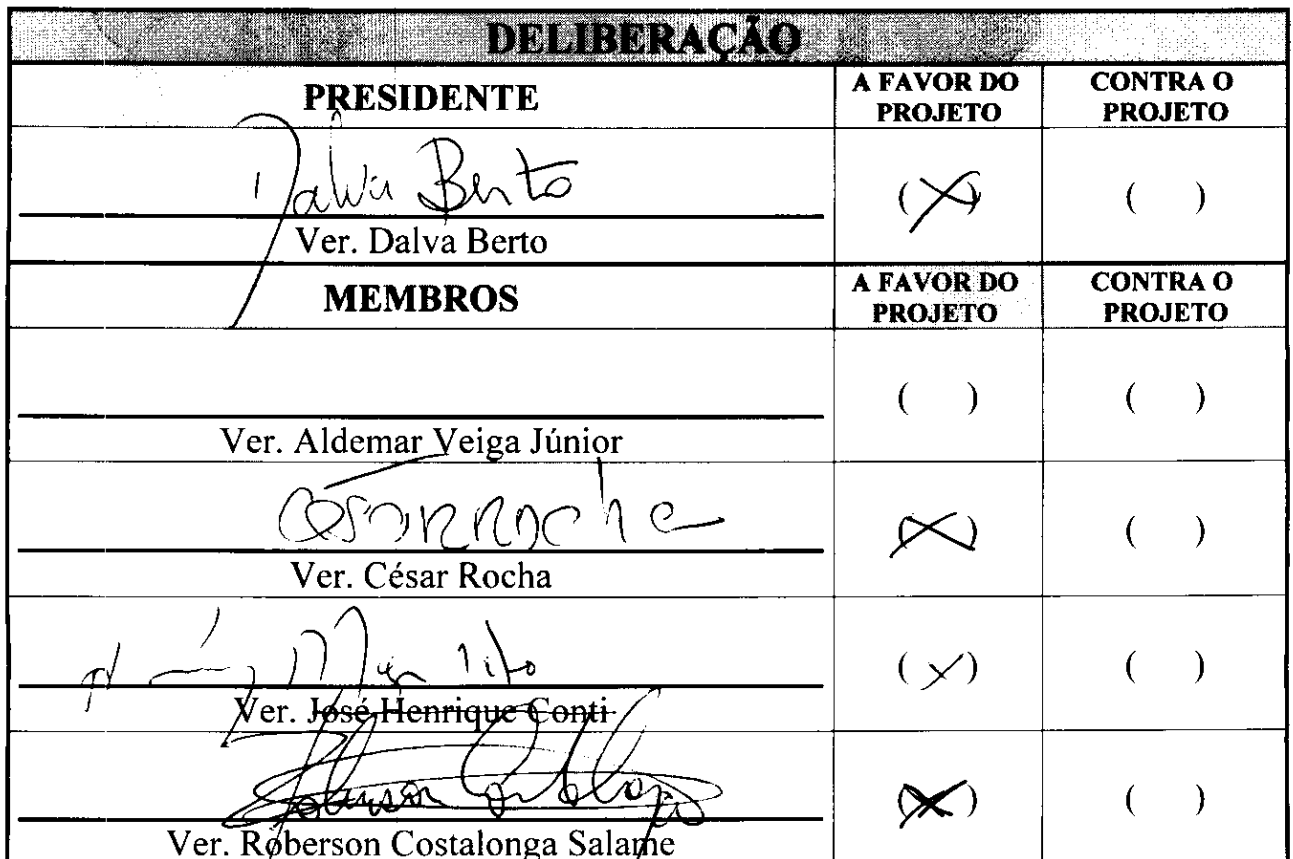 DELIBERAÇÃO
PRESIDENTE
A FAVOR DO PROJETO
CONTRA O PROJETO
Dalva Berto
(X)
( )
Ver. Dalva Berto
MEMBROS
A FAVOR DO PROJETO
CONTRA O PROJETO
( )
( )
Ver. Aldemar Veiga Júnior
César Rocha
(X)
( )
Ver. César Rocha
(X)
( )
Ver. José Henrique Conti
Roberson Costalonga
(X)
( )
Ver. Roberson Costalonga Salame